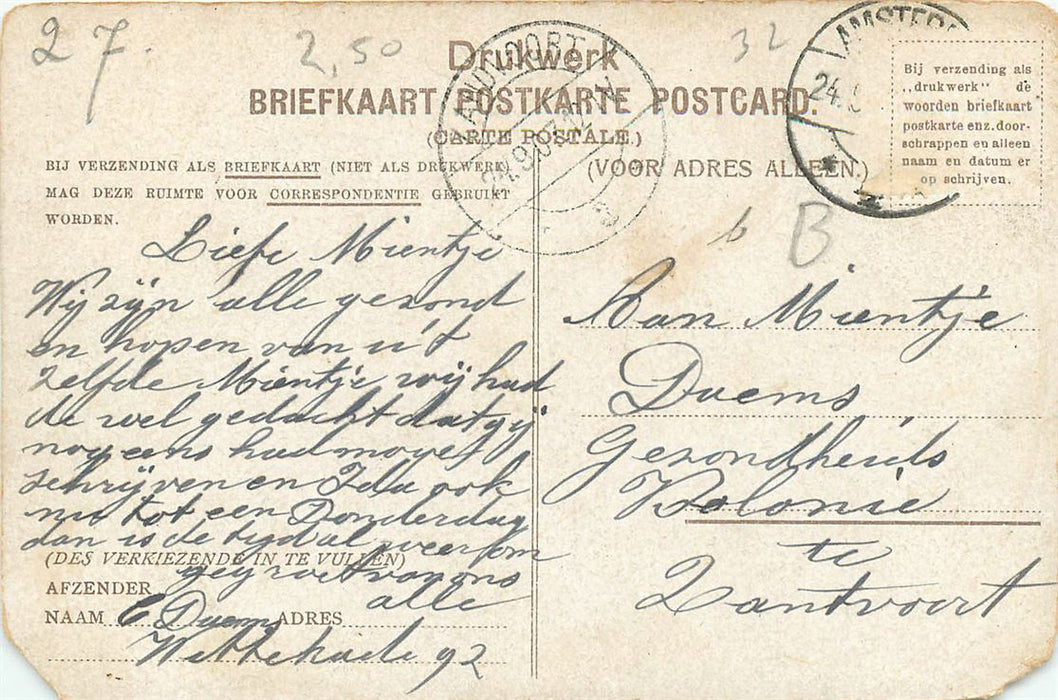 27.
2,50
32
Drukwerk
BRIEFKAART POSTKARTE POSTCARD.
(CARTE POSTALE.)
BIJ VERZENDING ALS BRIEFKAART (NIET ALS DRUKWERK)
MAG DEZE RUIMTE VOOR CORRESPONDENTIE GEBRUIKT
WORDEN.
(VOOR ADRES ALLEEN.)
Bij verzending als
„drukwerk" de
woorden briefkaart
postkarte enz. door-
schrappen en alleen
naam en datum er
op schrijven.
ZANDVOORT
AMSTERD
24.
B
Liefe Mientje
Wij zijn alle gezond
en hopen van u 't
zelfde Mientje wij had
de wel gedacht dat gij
nog eens had
schrijven en Ida ook
nu tot een Donderdag
dan is de tijd al weer om
(DES VERKIEZENDE IN TE VULLEN)
gegroet van ons
alle
AFZENDER
NAAM Duems ADRES
Wittekade 92
Aan Mientje
Duems
Gezondheids
Kolonie
te
Zantvoort